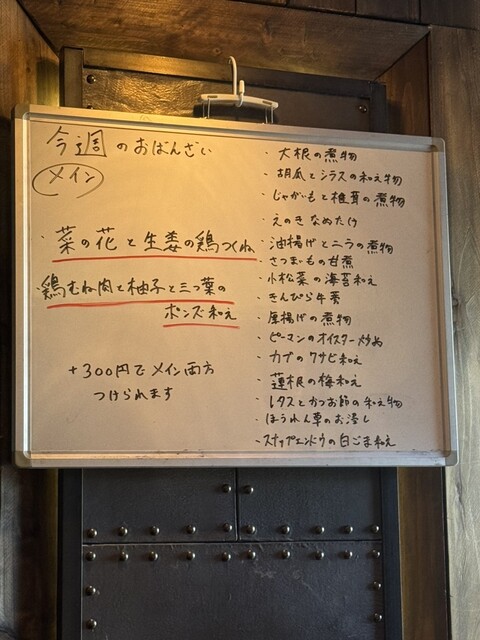 今週のおばんざい
メイン
・菜の花と生姜の鶏つくね
・鶏むね肉と柚子と三つ葉の
ポンズ和え
+300円でメイン両方
つけられます
・大根の煮物
・胡瓜とシラスの和え物
・じゃがもと椎茸の煮物
・えのきなめたけ
・油揚げとニラの煮物
・さつまいもの甘煮
・小松菜の海苔和え
・きんぴら牛蒡
・厚揚げの煮物
・ピーマンのオイスター炒め
・カブのワサビ和え
・蓮根の梅和え
・レタスとかつお節の和え物
・ほうれん草のお浸し
・スナップエンドウの白ごま和え